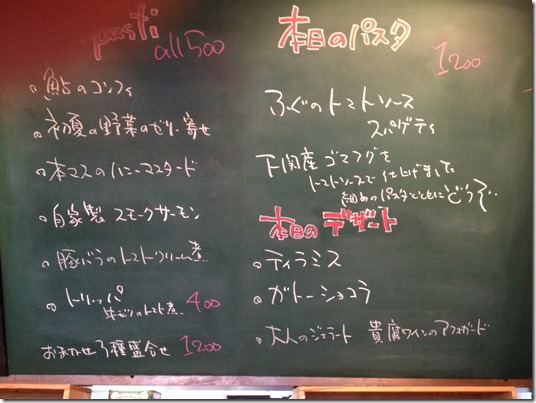 pasti
all 500
鮎のコンフィ
初夏の野菜のゼリー寄せ
本マスのハニーマスタード
自家製 スモークサーモン
豚バラのトマトクリーム煮
トリッパ 400
牛モツのトマト煮
おまかせ3種盛合せ 1200
本日のパスタ
1200
ふぐのトマトソース
スパゲティ
下関産ゴマフグを
トマトソースで仕上げました。
細めのパスタとともにどうぞ。
本日のデザート
ティラミス
ガトーショコラ
大人のジェラート 貴腐ワインのアフォガード